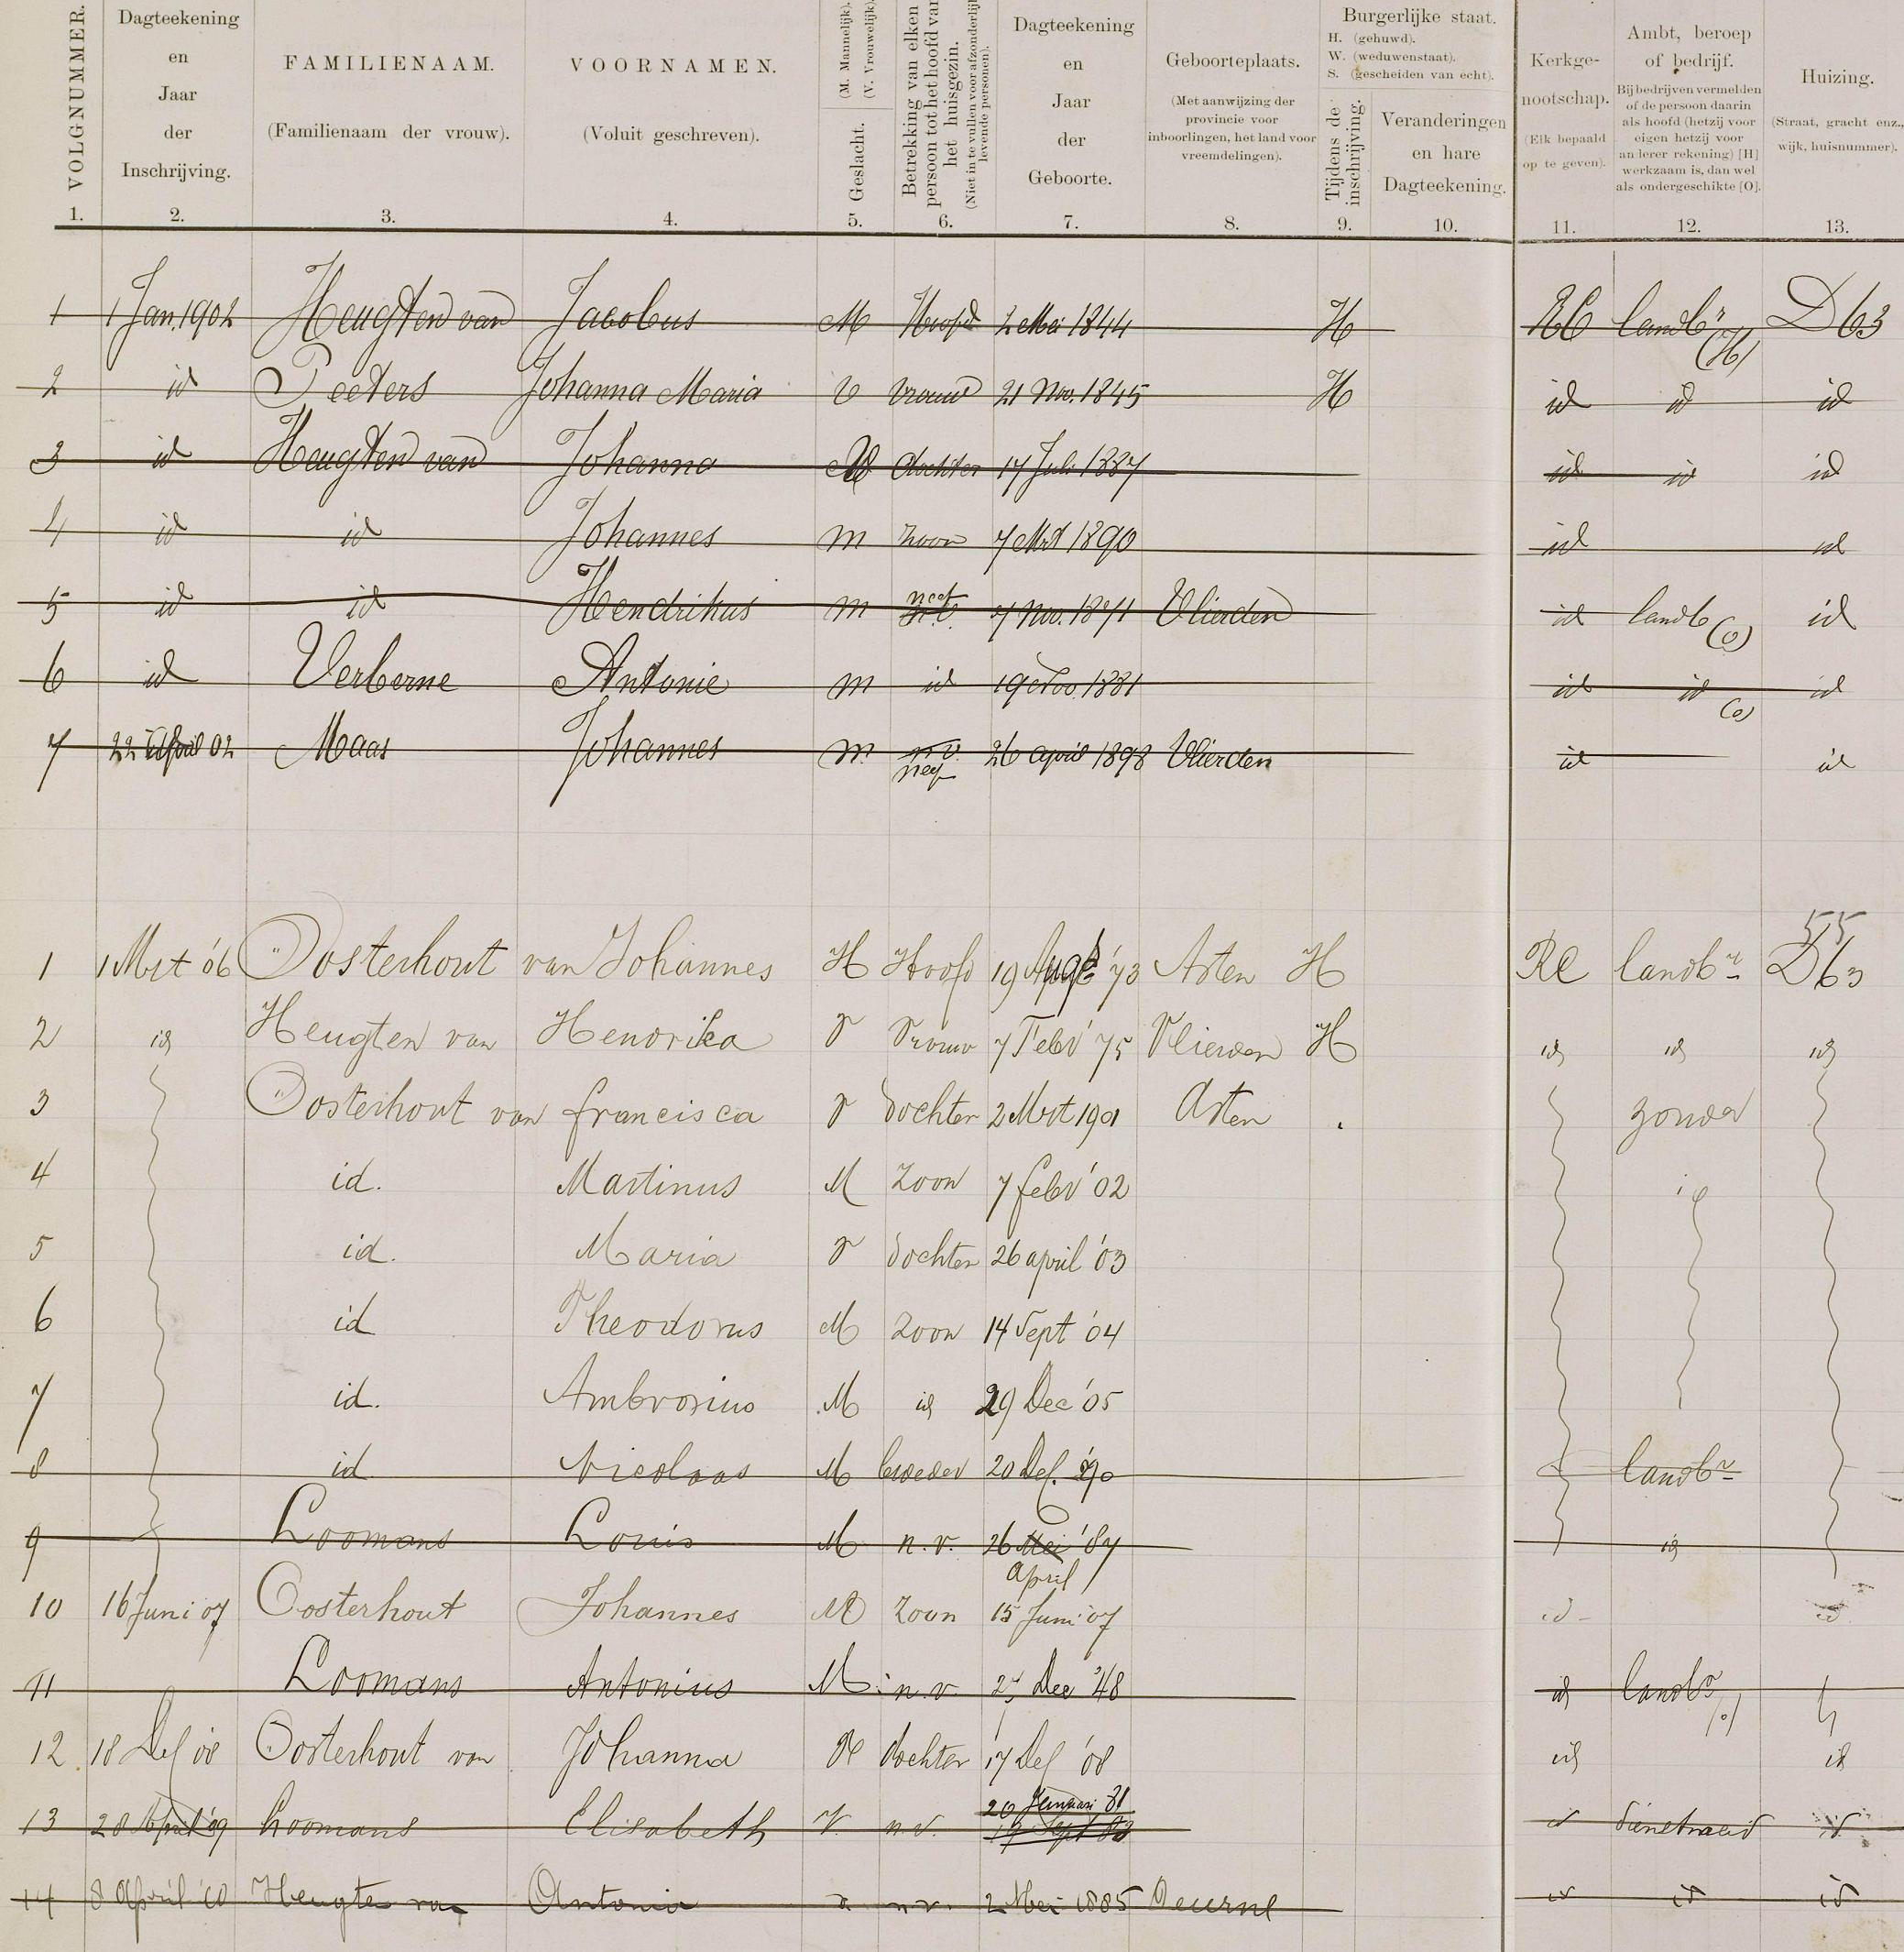 VOLGNUMMER. 1.
Dagteekening en Jaar der Inschrijving. 2.
FAMILIENAAM. (Familienaam der vrouw). 3.
VOORNAMEN. (Voluit geschreven). 4.
Geslacht. (M. Mannelijk). (V. Vrouwelijk). 5.
Betrekking van elken persoon tot het hoofd van het huisgezin. (Niet in te vullen voor afzonderlijk levende personen). 6.
Dagteekening en Jaar der Geboorte. 7.
Geboorteplaats. (Met aanwijzing der provincie voor inboorlingen, het land voor vreemdelingen). 8.
Burgerlijke staat. H. (gehuwd). W. (weduwenstaat). S. (gescheiden van echt).
Tijdens de inschrijving. 9.
Veranderingen en hare Dagteekening. 10.
Kerkgenootschap. (Elk bepaald op te geven). 11.
Ambt, beroep of bedrijf. Bij bedrijven vermelden of de persoon daarin als hoofd (hetzij voor eigen hetzij voor anderer rekening) [H] werkzaam is, dan wel als ondergeschikte [O]. 12.
Huizing. (Straat, gracht enz., wijk, huisnummer). 13.
1 1 Jan. 1902 Heugten van Jacobus M Hoofd 2 Mei 1844 H RC landbr (H) D63
2 id Peeters Johanna Maria V vrouw 21 Nov. 1845 H id id id
3 id Heugten van Johanna V dochter 17 Juli 1887 id id id
4 id id Johannes m zoon 7 Mrt 1890 id id
5 id id Hendrikus m neef 7 Nov. 1871 Vlierden id landb (O) id
6 id Verberne Antonie m id 19 Nov. 1881 id id (O) id
7 22 April 02 Maas Johannes m. n.v. neef 26 april 1898 Vlierden id id
1 1 Mrt '06 Oosterhout van Johannes H Hoofd 19 Aug '73 Asten H RC landbr 55 D63
2 id Heugten van Hendrika V Vrouw 7 Febr '75 Vlierden H id id id
3 Oosterhout van francisca V dochter 2 Mrt 1901 Asten zonder
4 id. Martinus M zoon 7 febr '02 id
5 id. Maria V dochter 26 april '03
6 id Theodorus M zoon 14 Sept '04
7 id. Ambrosius M id 29 Dec '05
8 id Nicolaas M broeder 20 Dec. '90 landbr
9 Loomans Louis M n.v. 26 Mei '87 April id
10 16 Juni 07 Oosterhout Johannes M zoon 15 Juni '07 id id
11 Loomans Antonius M n.v. Dec '48 id landbr (o)
12 18 Dec 08 Oosterhout van Johanna V dochter 17 Dec '08 id id
13 28 April '09 Loomans Elisabeth V. n.v. 20 Januari 81 19 Sept 83 id dienstmeid id
14 8 April '10 Heugten van Antonia V n.v. 2 Mei 1885 Deurne id id id